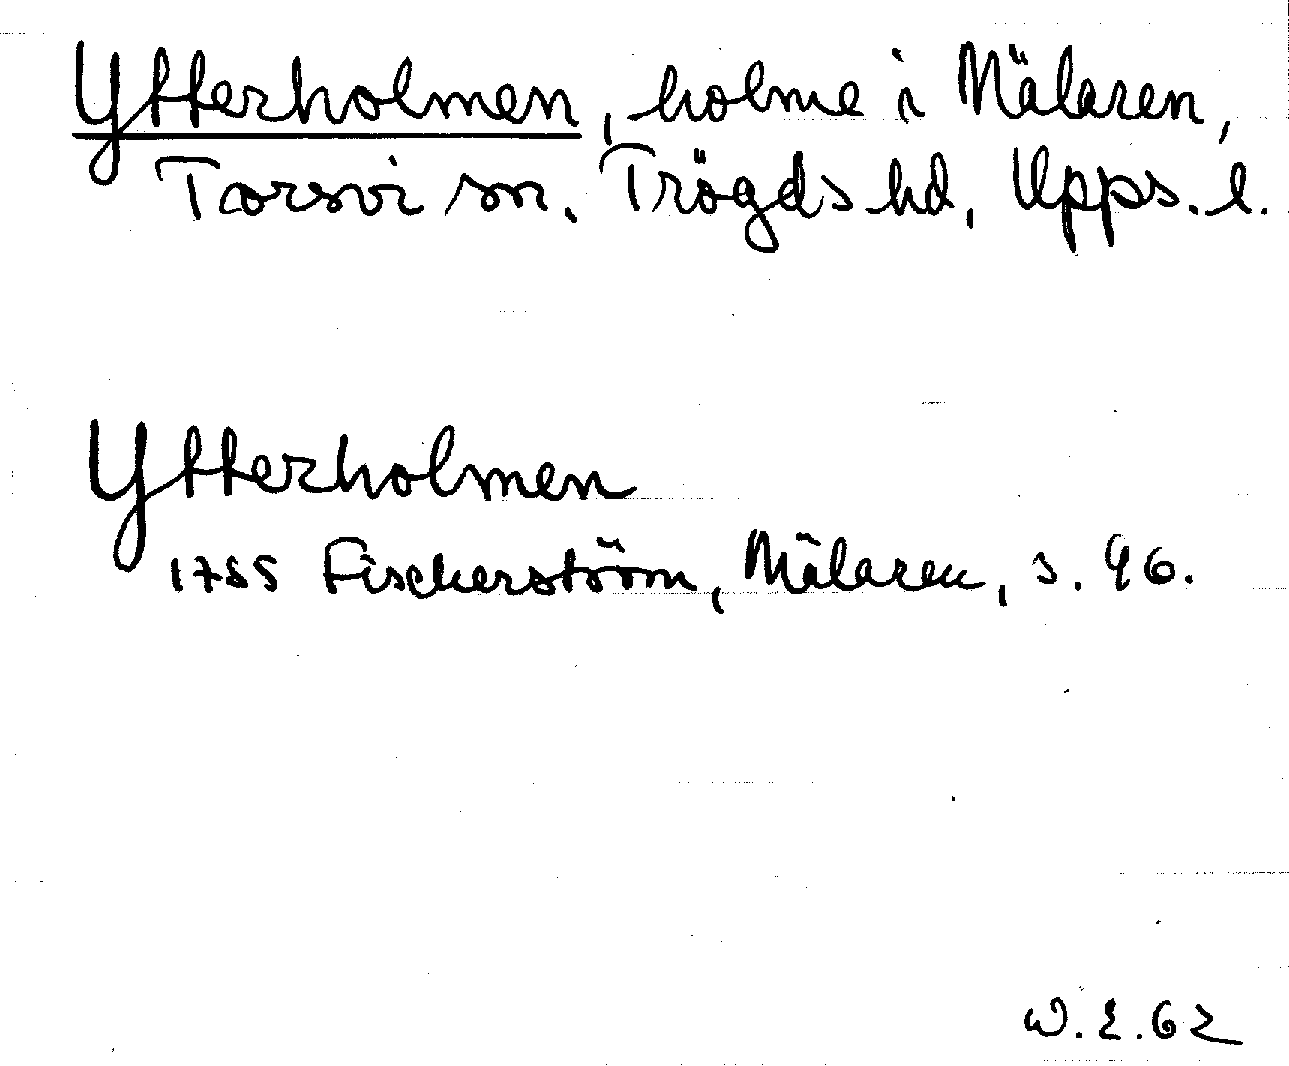 Ytterholmen, holme i Mälaren,
Torsvi sn. Trögds hd, Upps. l.
Ytterholmen
1785 Fischerström, Mälaren, s. 96.
W.E.62